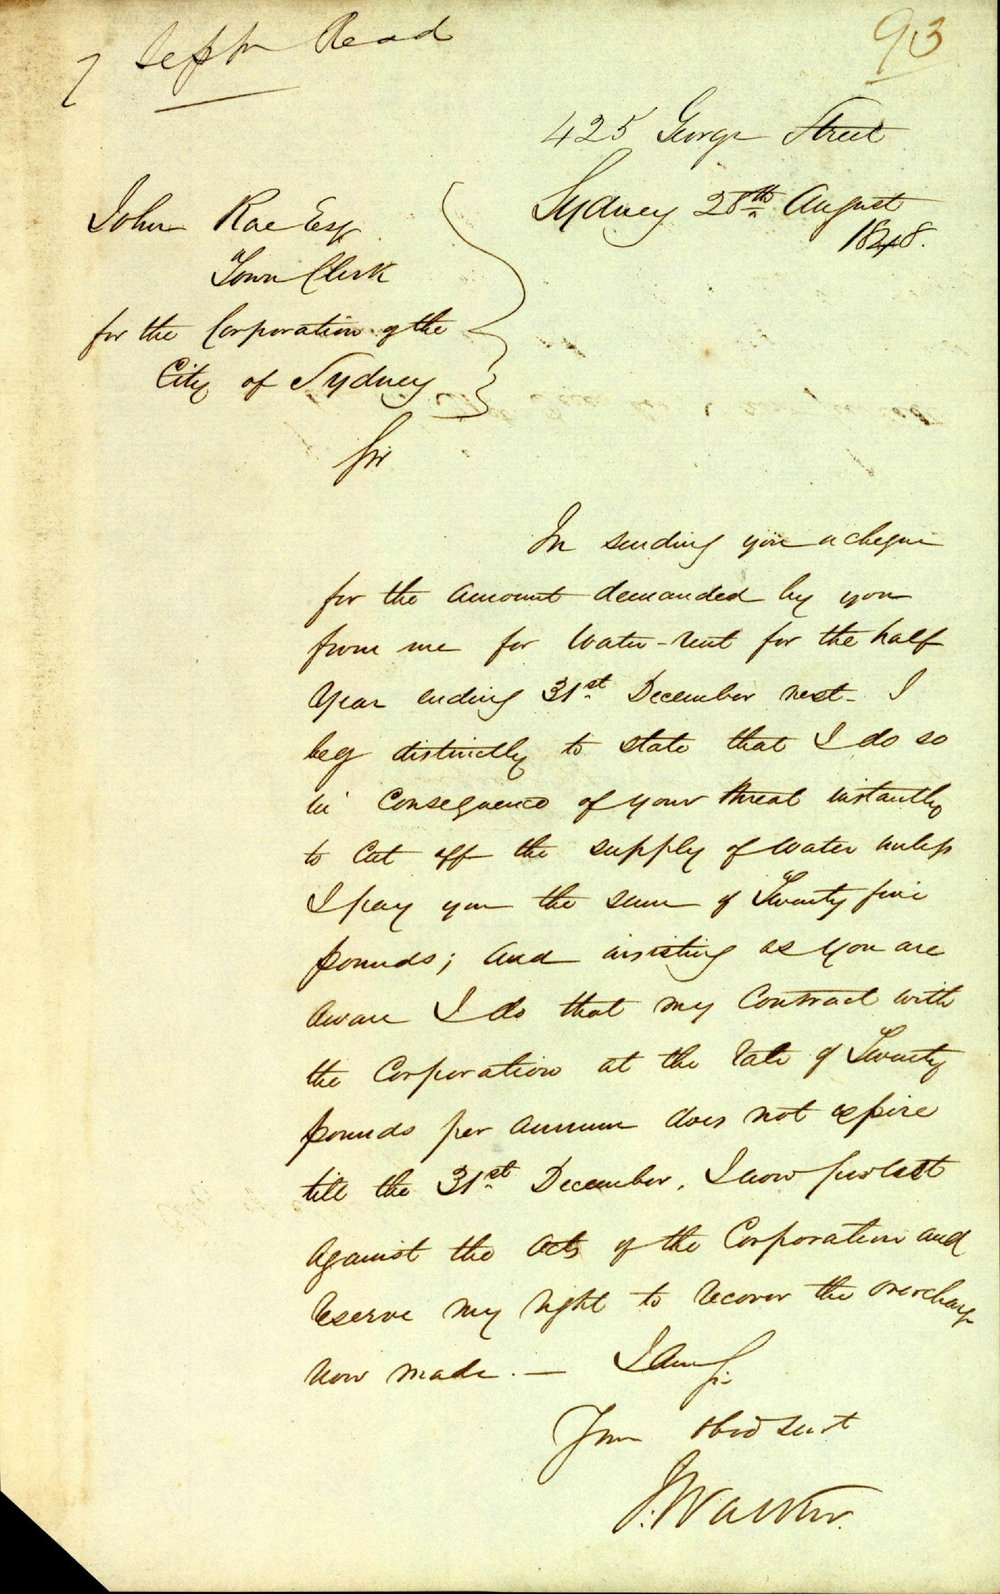 7 Sepr Read
93
425 George Street
Sydney 28th August
1848.
John Rae Esq
Town Clerk
for the Corporation of the
City of Sydney
Sir
In sending you a cheque
for the amount demanded by you
from me for Water-rent for the half
Year ending 31st December next - I
beg distinctly to state that I do so
in consequence of your threat instantly
to cut off the supply of Water unless
I pay you the sum of Twenty five
pounds; and insisting as you are
aware I do that my Contract with
the Corporation at the rate of Twenty
pounds per annum does not expire
till the 31st December, I now protest
against the acts of the Corporation and
reserve my right to recover the overcharge
now made. — I am Sir
Your obed Servt
J. Walker.